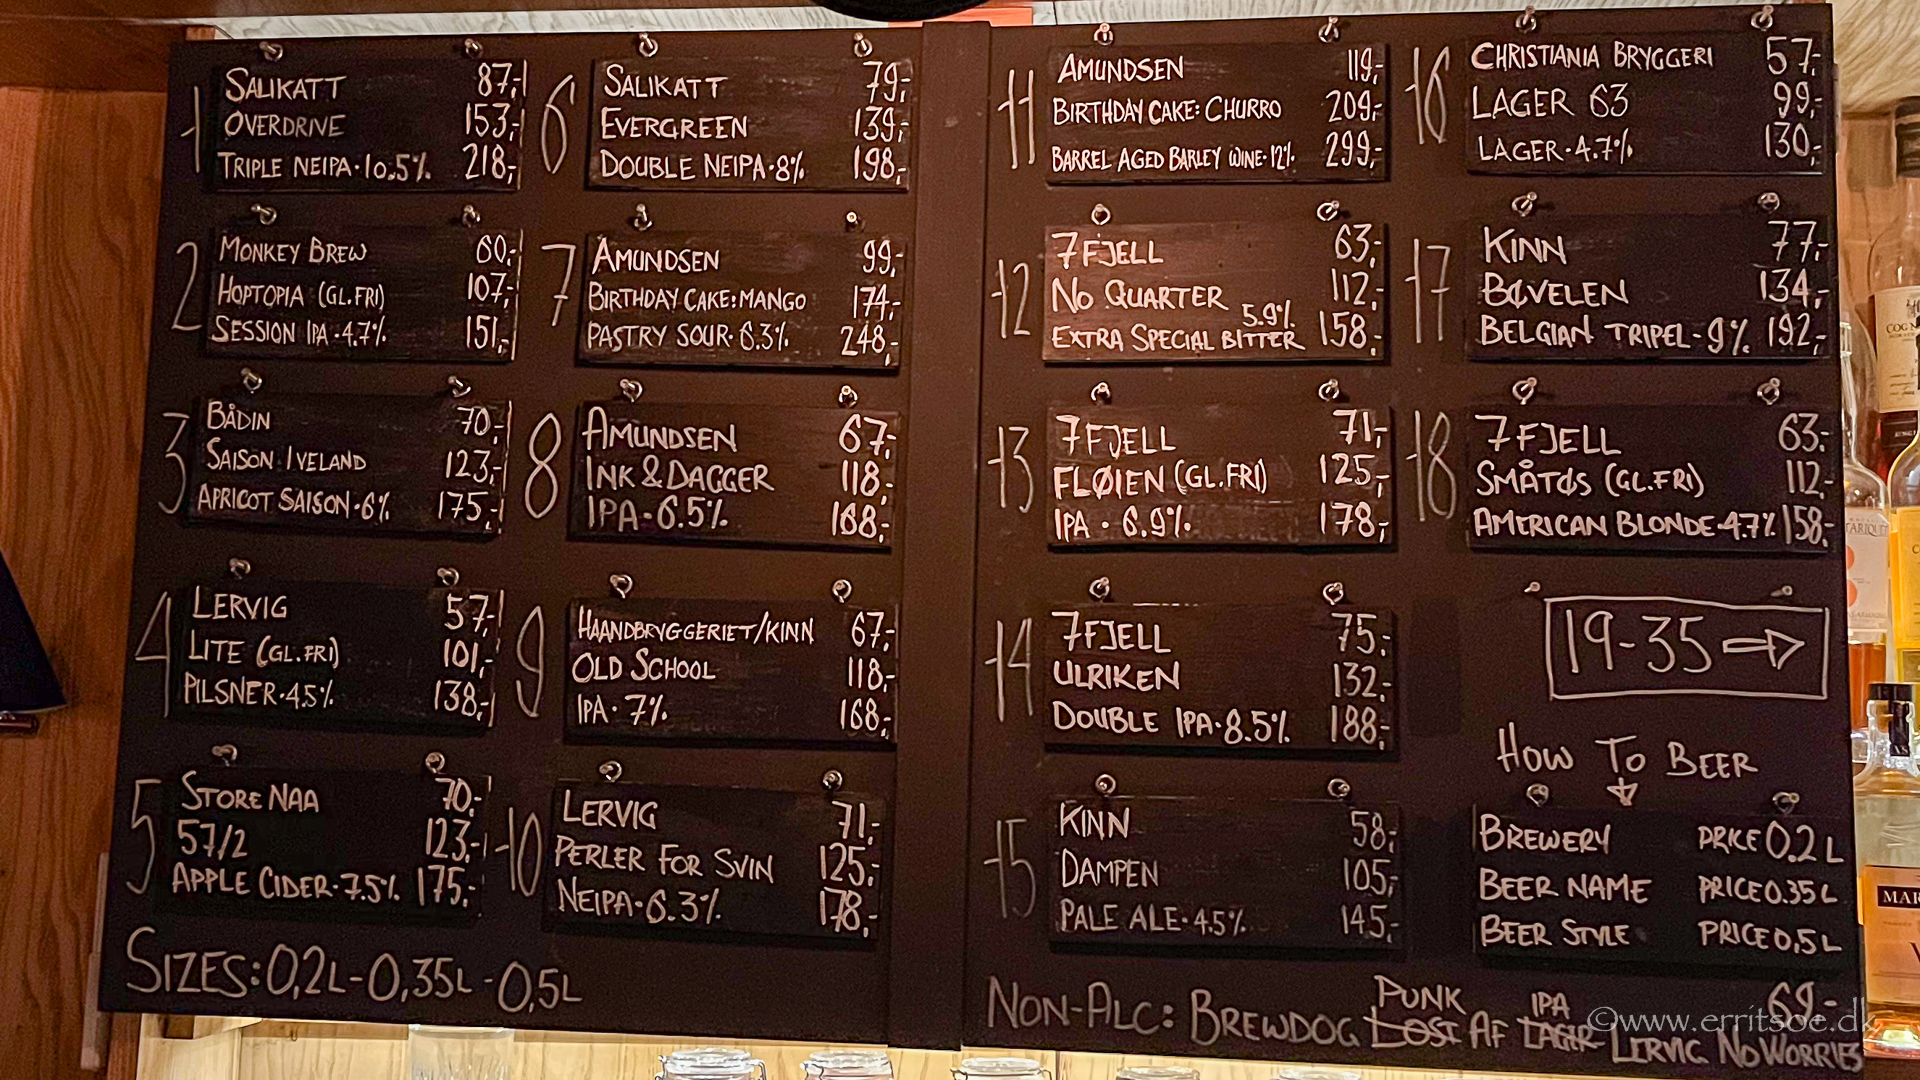 1 SALIKATT 87,-
OVERDRIVE 153,-
TRIPLE NEIPA·10.5% 218,-
2 MONKEY BREW 60,-
HOPTOPIA (GL.FRI) 107,-
SESSION IPA·4.7% 151,-
3 BÅDIN 70,-
SAISON IVELAND 123,-
APRICOT SAISON·6% 175,-
4 LERVIG 57,-
LITE (GL.FRI) 101,-
PILSNER·4.5% 138,-
5 STORE NAA 70,-
57/2 123,-
APPLE CIDER·7.5% 175,-
6 SALIKATT 79,-
EVERGREEN 139,-
DOUBLE NEIPA·8% 198,-
7 AMUNDSEN 99,-
BIRTHDAY CAKE: MANGO 174,-
PASTRY SOUR·6.3% 248,-
8 AMUNDSEN 67,-
INK & DAGGER 118,-
IPA·6.5% 168,-
9 HAANDBRYGGERIET/KINN 67,-
OLD SCHOOL 118,-
IPA·7% 168,-
10 LERVIG 71,-
PERLER FOR SVIN 125,-
NEIPA·6.3% 178,-
SIZES: 0,2L-0,35L-0,5L
11 AMUNDSEN 119,-
BIRTHDAY CAKE: CHURRO 209,-
BARREL AGED BARLEY WINE·12% 299,-
12 7 FJELL 63,-
NO QUARTER 112,-
EXTRA SPECIAL BITTER 5.9% 158,-
13 7 FJELL 71,-
FLØIEN (GL.FRI) 125,-
IPA · 6.9% 178,-
14 7 FJELL 75,-
ULRIKEN 132,-
DOUBLE IPA·8.5% 188,-
15 KINN 58,-
DAMPEN 105,-
PALE ALE·4.5% 145,-
16 CHRISTIANIA BRYGGERI 57,-
LAGER 63 99,-
LAGER·4.7% 130,-
17 KINN 77,-
BØVELEN 134,-
BELGIAN TRIPEL·9% 192,-
18 7 FJELL 63,-
SMÅTØS (GL.FRI) 112,-
AMERICAN BLONDE·4.7% 158,-
19-35 ⇒
HOW TO BEER
BREWERY PRICE 0.2 L
BEER NAME PRICE 0.35 L
BEER STYLE PRICE 0,5 L
PUNK IPA 69,-
NON-ALC: BREWDOG LOST AF LAGER
LERVIG NO WORRIES
©www.erritsoe.dk